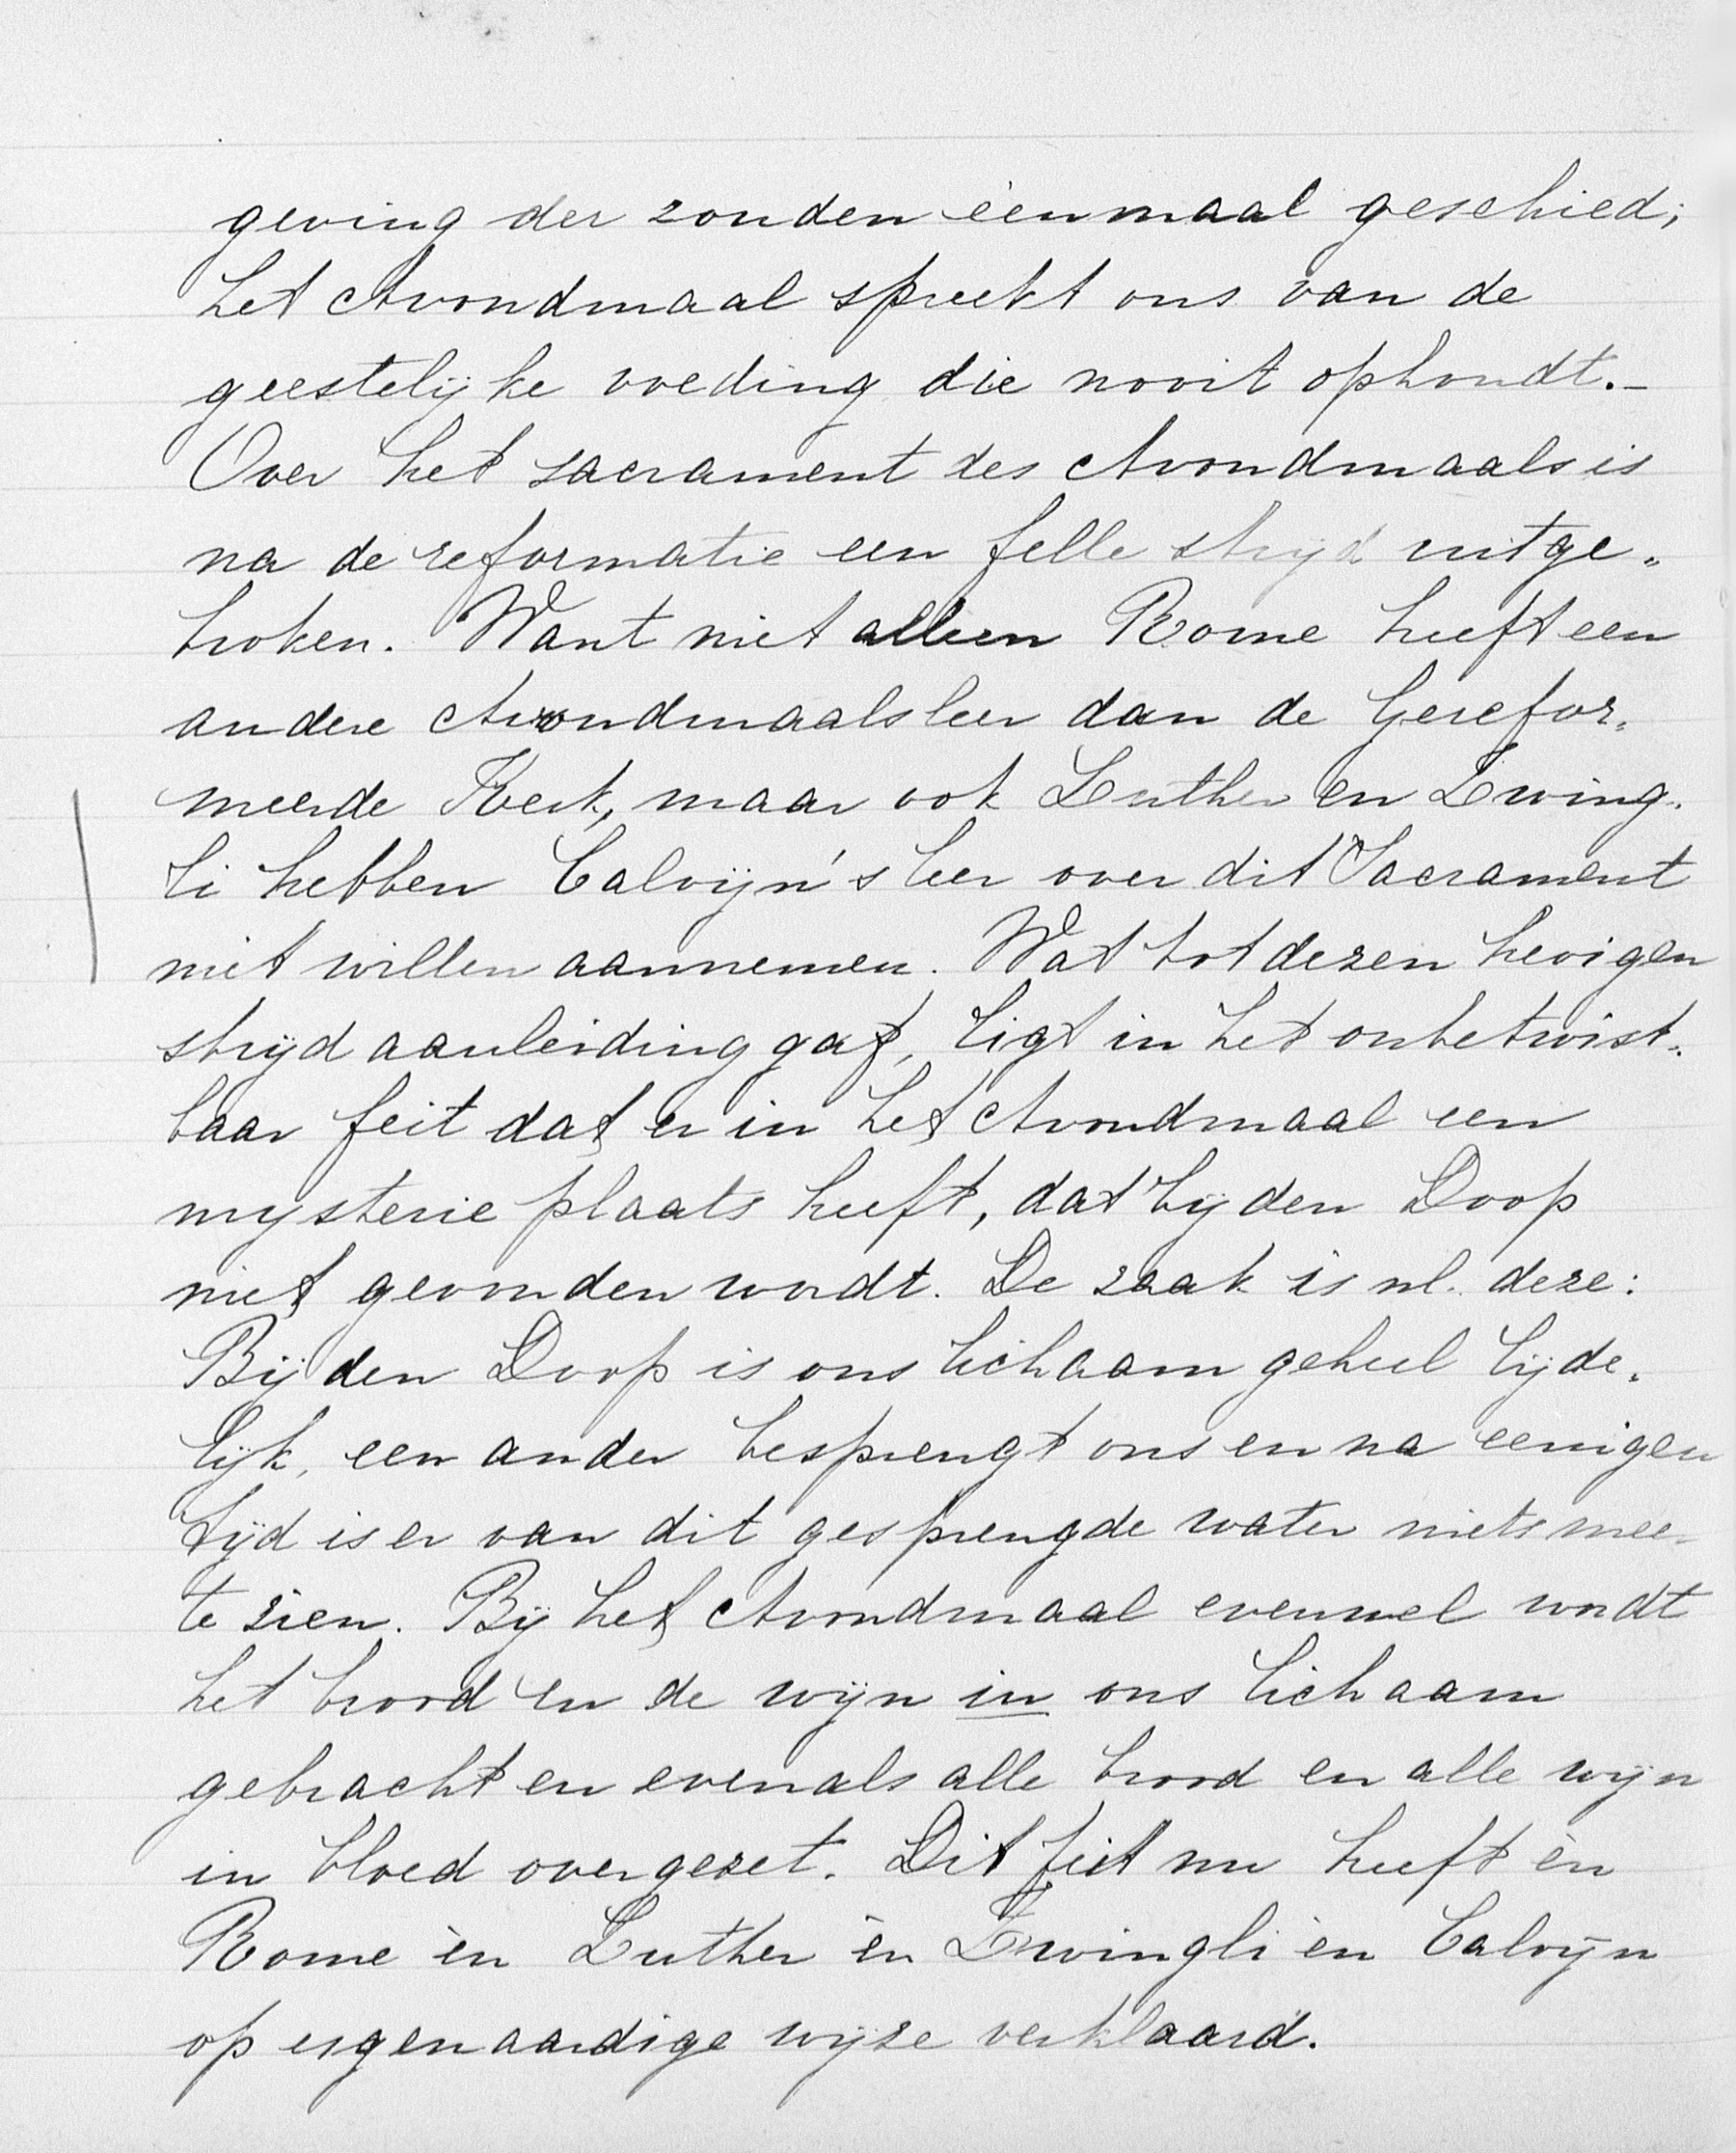 geving der zonden éénmaal geschied;
het Avondmaal spreekt ons van de
geestelijke voeding die nooit ophoudt.-
Over het sacrament des Avondmaals is
na de reformatie een felle strijd uitge-
broken. Want niet alleen Rome heeft een
andere Avondmaalsleer dan de Gerefor-
meerde Kerk, maar ook Luther en Zwing-
li hebben Calvijn's leer over dit Sacrament
niet willen aannemen. Wat tot dezen hevigen
strijd aanleiding gaf, ligt in het onbetwist-
baar feit dat er in het Avondmaal een
mysterie plaats heeft, dat bij den Doop
niet gevonden wordt. De zaak is nl. deze:
Bij den Doop is ons lichaam geheel lijde-
lijk, een ander besprengt ons en na eenigen
tijd is er van dit gesprengde water niets mee-
te zien. Bij het Avondmaal evenwel wordt
het brood en de wijn in ons lichaam
gebracht en evenals alle brood en alle wijn
in bloed overgezet. Dit feit nu heeft èn
Rome èn Luther èn Zwingli èn Calvijn
op eigenaardige wijze verklaard.